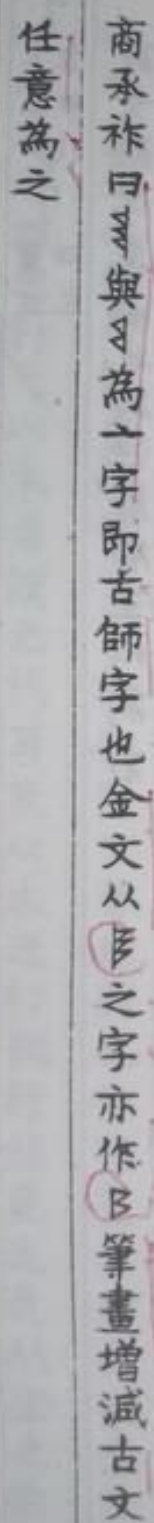 商承祚曰與為一字即古師字也金文从𨸏之字亦作阝筆畫增減古文
任意為之